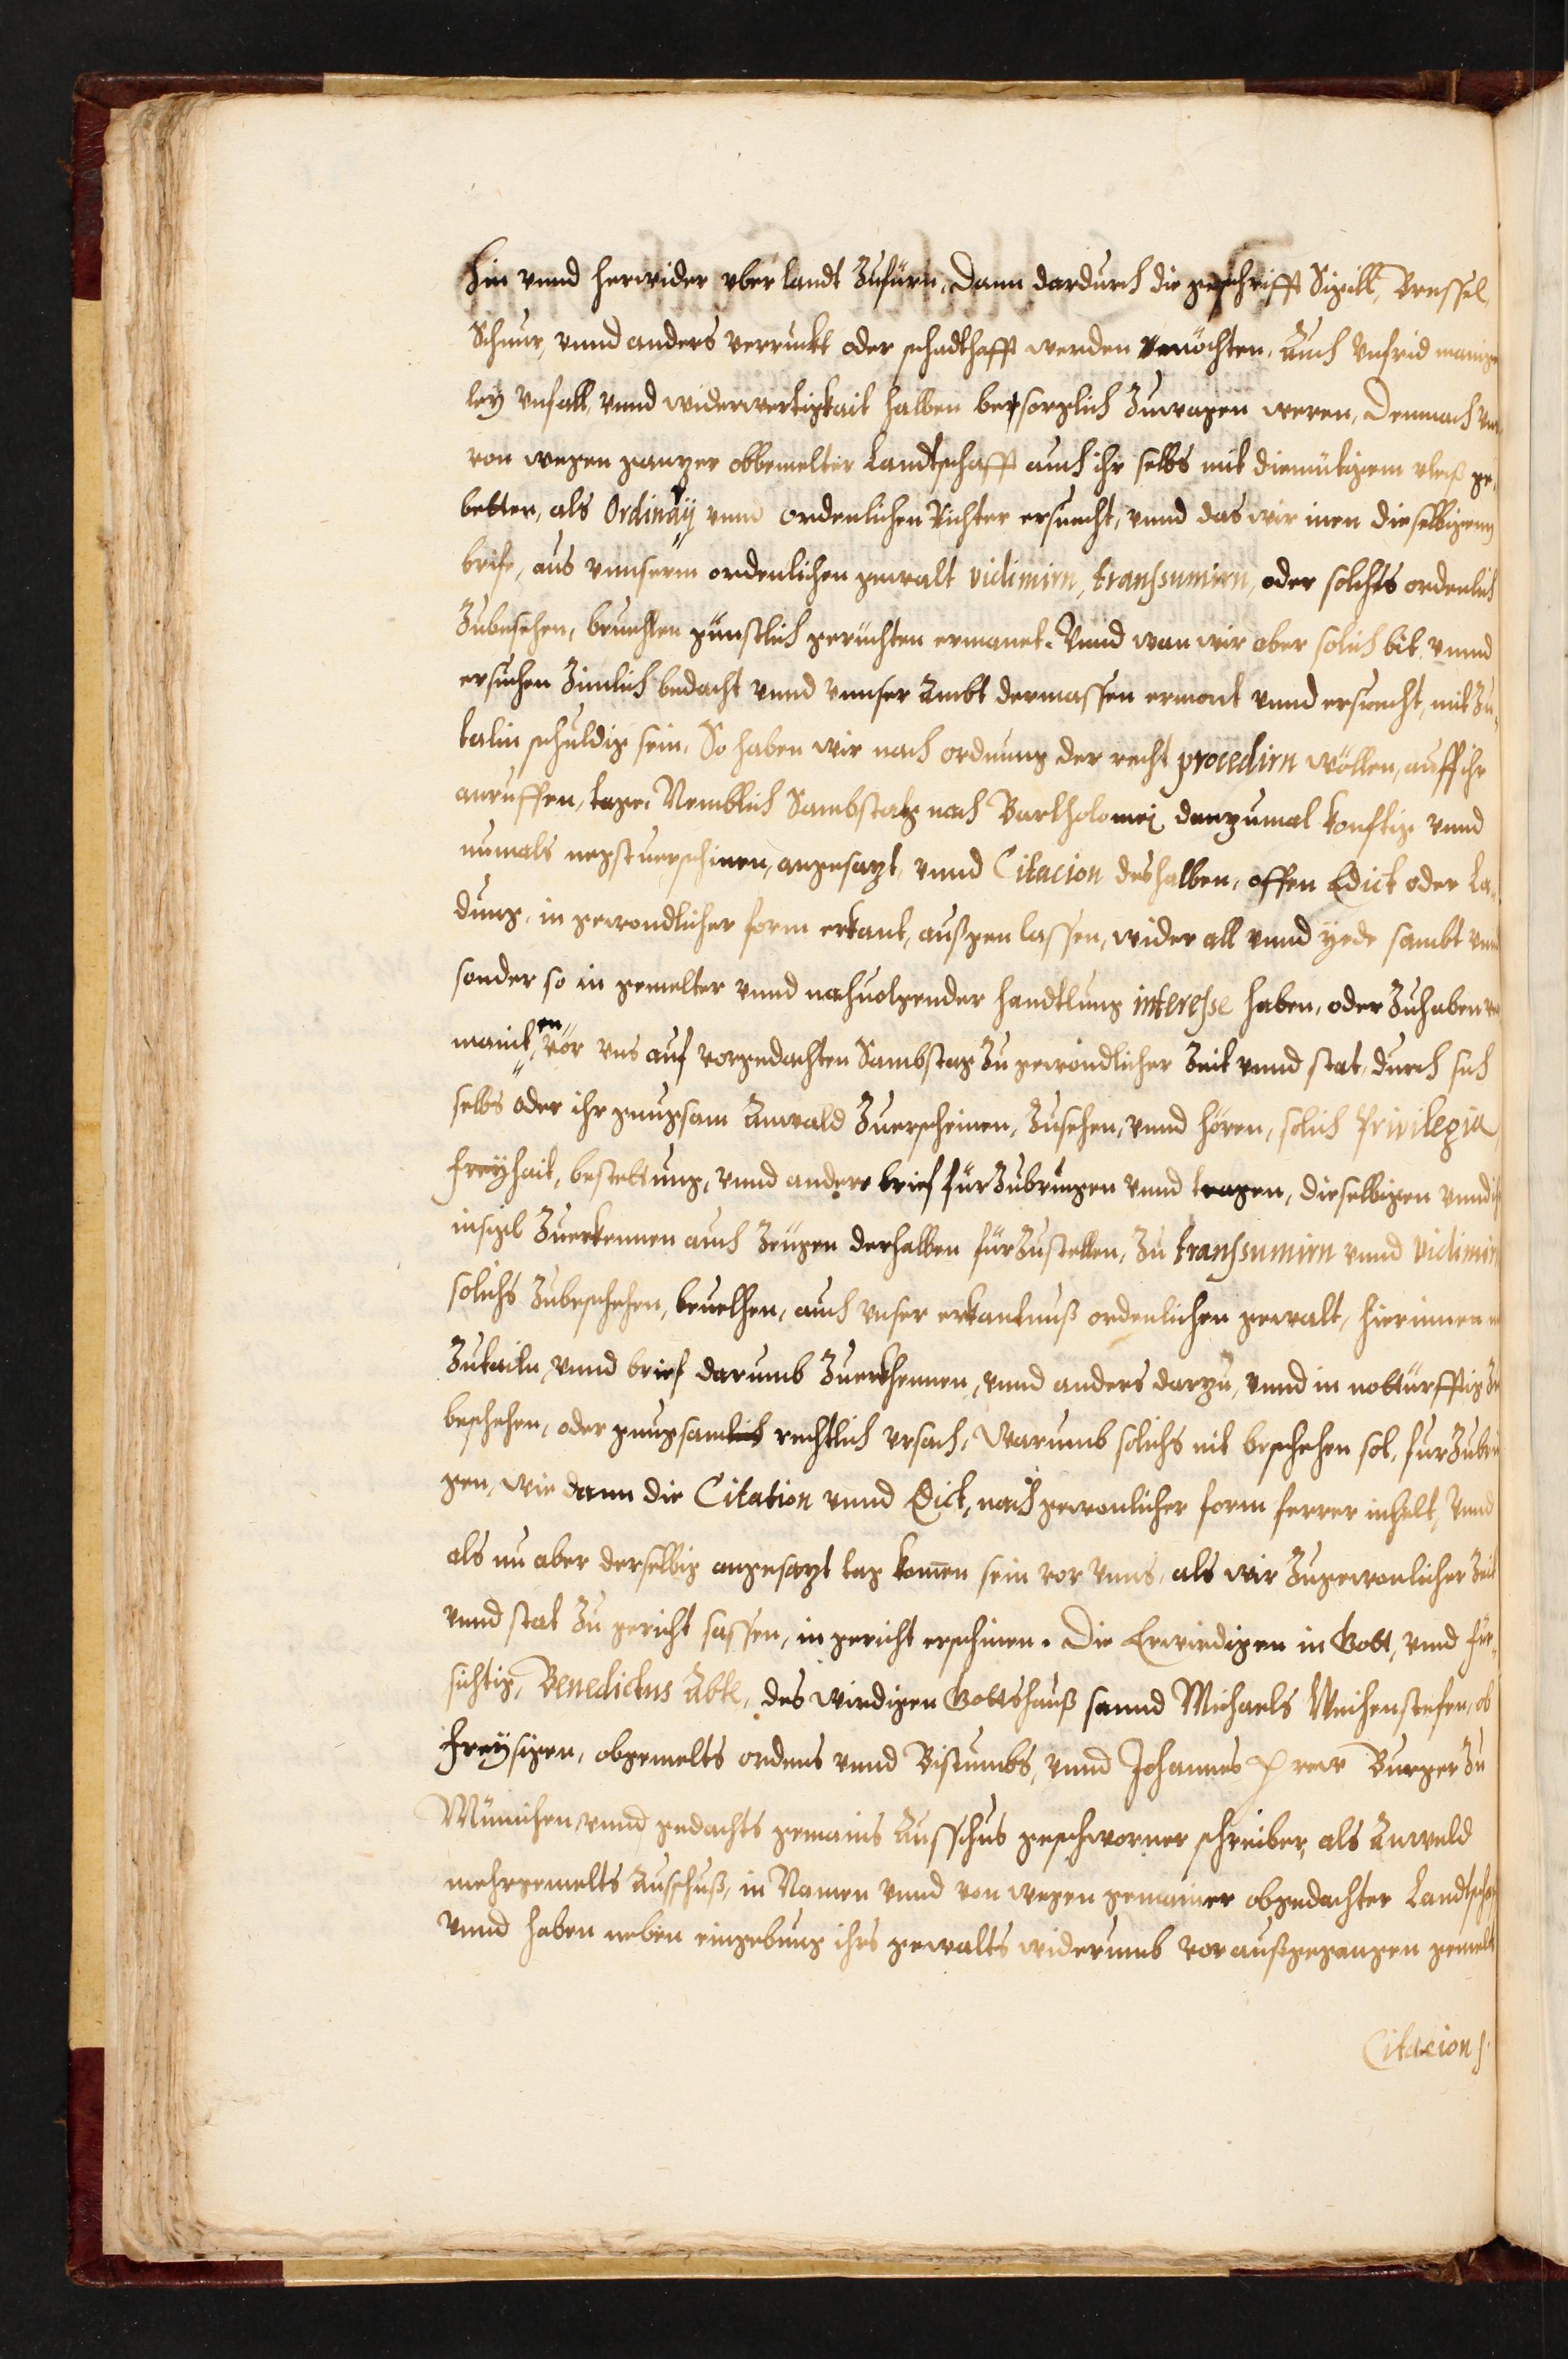 hin vnnd herwider vber landt Zufürn, Dann dardurch die geschrifft Sigill, Bressel,
Schnur, vnnd anders verruckt oder schadthafft werden möchten, Auch Vnfrid maniger
ley Vnfall, vnnd widerwertigkait halben besorglich Zuwagen weren, Demnach vnns
von wegen gantzer obbemelter Landtschafft auch ihr selbs mit diemütigem vleiß ge,
betten, als Ordinarÿ vnnd ordenlichen Richter ersuecht, vnnd das wir inen dieselbigenn
brife, aus vnnserm ordenlichen gewalt vidimirn, transsumirn, oder solchs ordenlich
Zubesehen, beuelhen günstlich geruchten ermanet. Vnnd wan wir aber solich bit vnnd
ersuchen Zimlich bedacht vnnd vnnser Ambt dermassen ermant vnnd ersuecht, mit Zu,
tailn schuldig sein, So haben wir nach ordnung der recht procedirn wöllen, auff ihr
anruffen, tage, Nemblich Sambstag nach Bartholomei dantzumal konftig vnnd
numals negstuerschinen, angesatzt, vnnd Citacion deshalben, offen Edict oder La,,
dung, in gewondlicher form erkant, außgen lassen, wider all vnnd yede sambt vnnd
sonder so in gemelter vnnd nachuolgender handtlung interesse haben, oder Zuhaben ver
mainten, vor vns auf vorgedachten Sambstag Zu gewondlicher Zeit vnnd stat, durch sich
selbs oder ihr gnugsam Anwald Zuerscheinen, Zusehen, vnnd hören, solich Privilegia
freÿhait, bestettung, vnnd andere brief fürZubringen vnnd tragen, dieselbigen vnnd ihr
insigl Zuerkennen auch Zeugen derhalben fürZustellen, Zu transsumirn vnnd vidimirn
solichs Zubeschehen, beuelhen, auch vnser erkantnuß ordenlichen gewalt, hierinnen mit
Zutailn, vnnd brief darumb Zuerkhennen, vnnd anders dartzu, vnnd in notturfftig Zu
beschehen, oder gnugsamlich rechtlich vrsach, Warumb solichs nit beschehen sol, furZubrin
gen, wie dann die Citation vnnd Edict, nach gewonlicher form ferrer inhelt, Vnnd
als nu aber derselbig angesatzt tag komen sein vor vnns, als wir Zugewonlicher Zeit
vnnd stat Zu gericht sassen, in gericht erschinen. Die Erwirdigen in Gott, vnnd für,
sichtig, Benedictus Abte, des wirdigen Gottshauß sannd Michaels Weihenstefen, ob
freÿsigen, obgemelts ordens vnnd Bistumbs, vnnd Johannes Burger Zu
Münichen, vnnd gedachts gemains Ausschus geschworner schreiber, als Anweld
mehrgemelts Ausschuß, in Namen vnnd von wegen gemainer obgedachter Landtschafft
vnnd haben neben eingebung ihrs gewalts widerumb vor außgegangen gemelt
Citacion